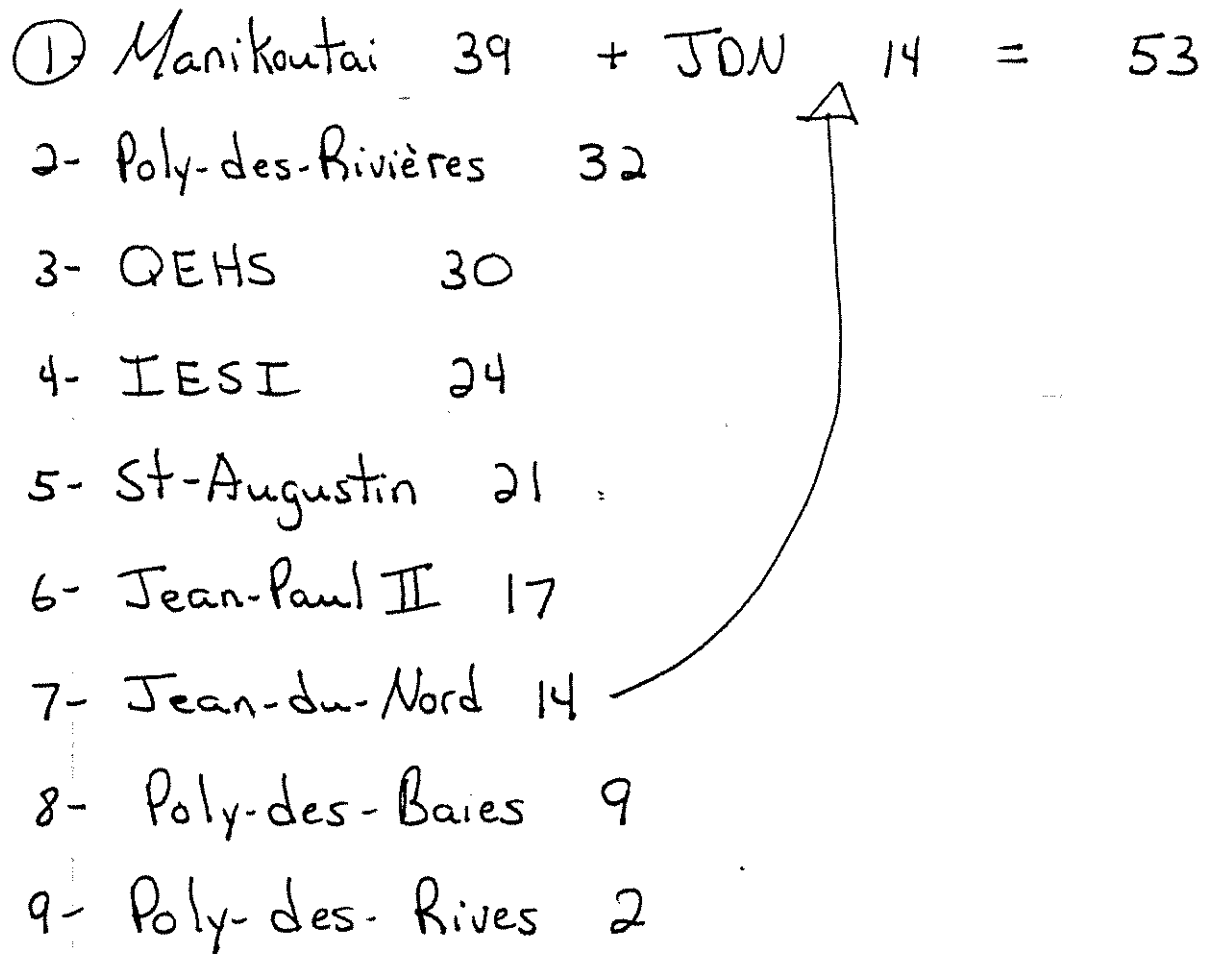 1 Manikoutai 39 + JDN 14 = 53
2- Poly-des-Rivières 32
3- QEHS 30
4- IESI 24
5- St-Augustin 21
6- Jean-Paul II 17
7- Jean-du-Nord 14
8- Poly-des-Baies 9
9- Poly-des-Rives 2